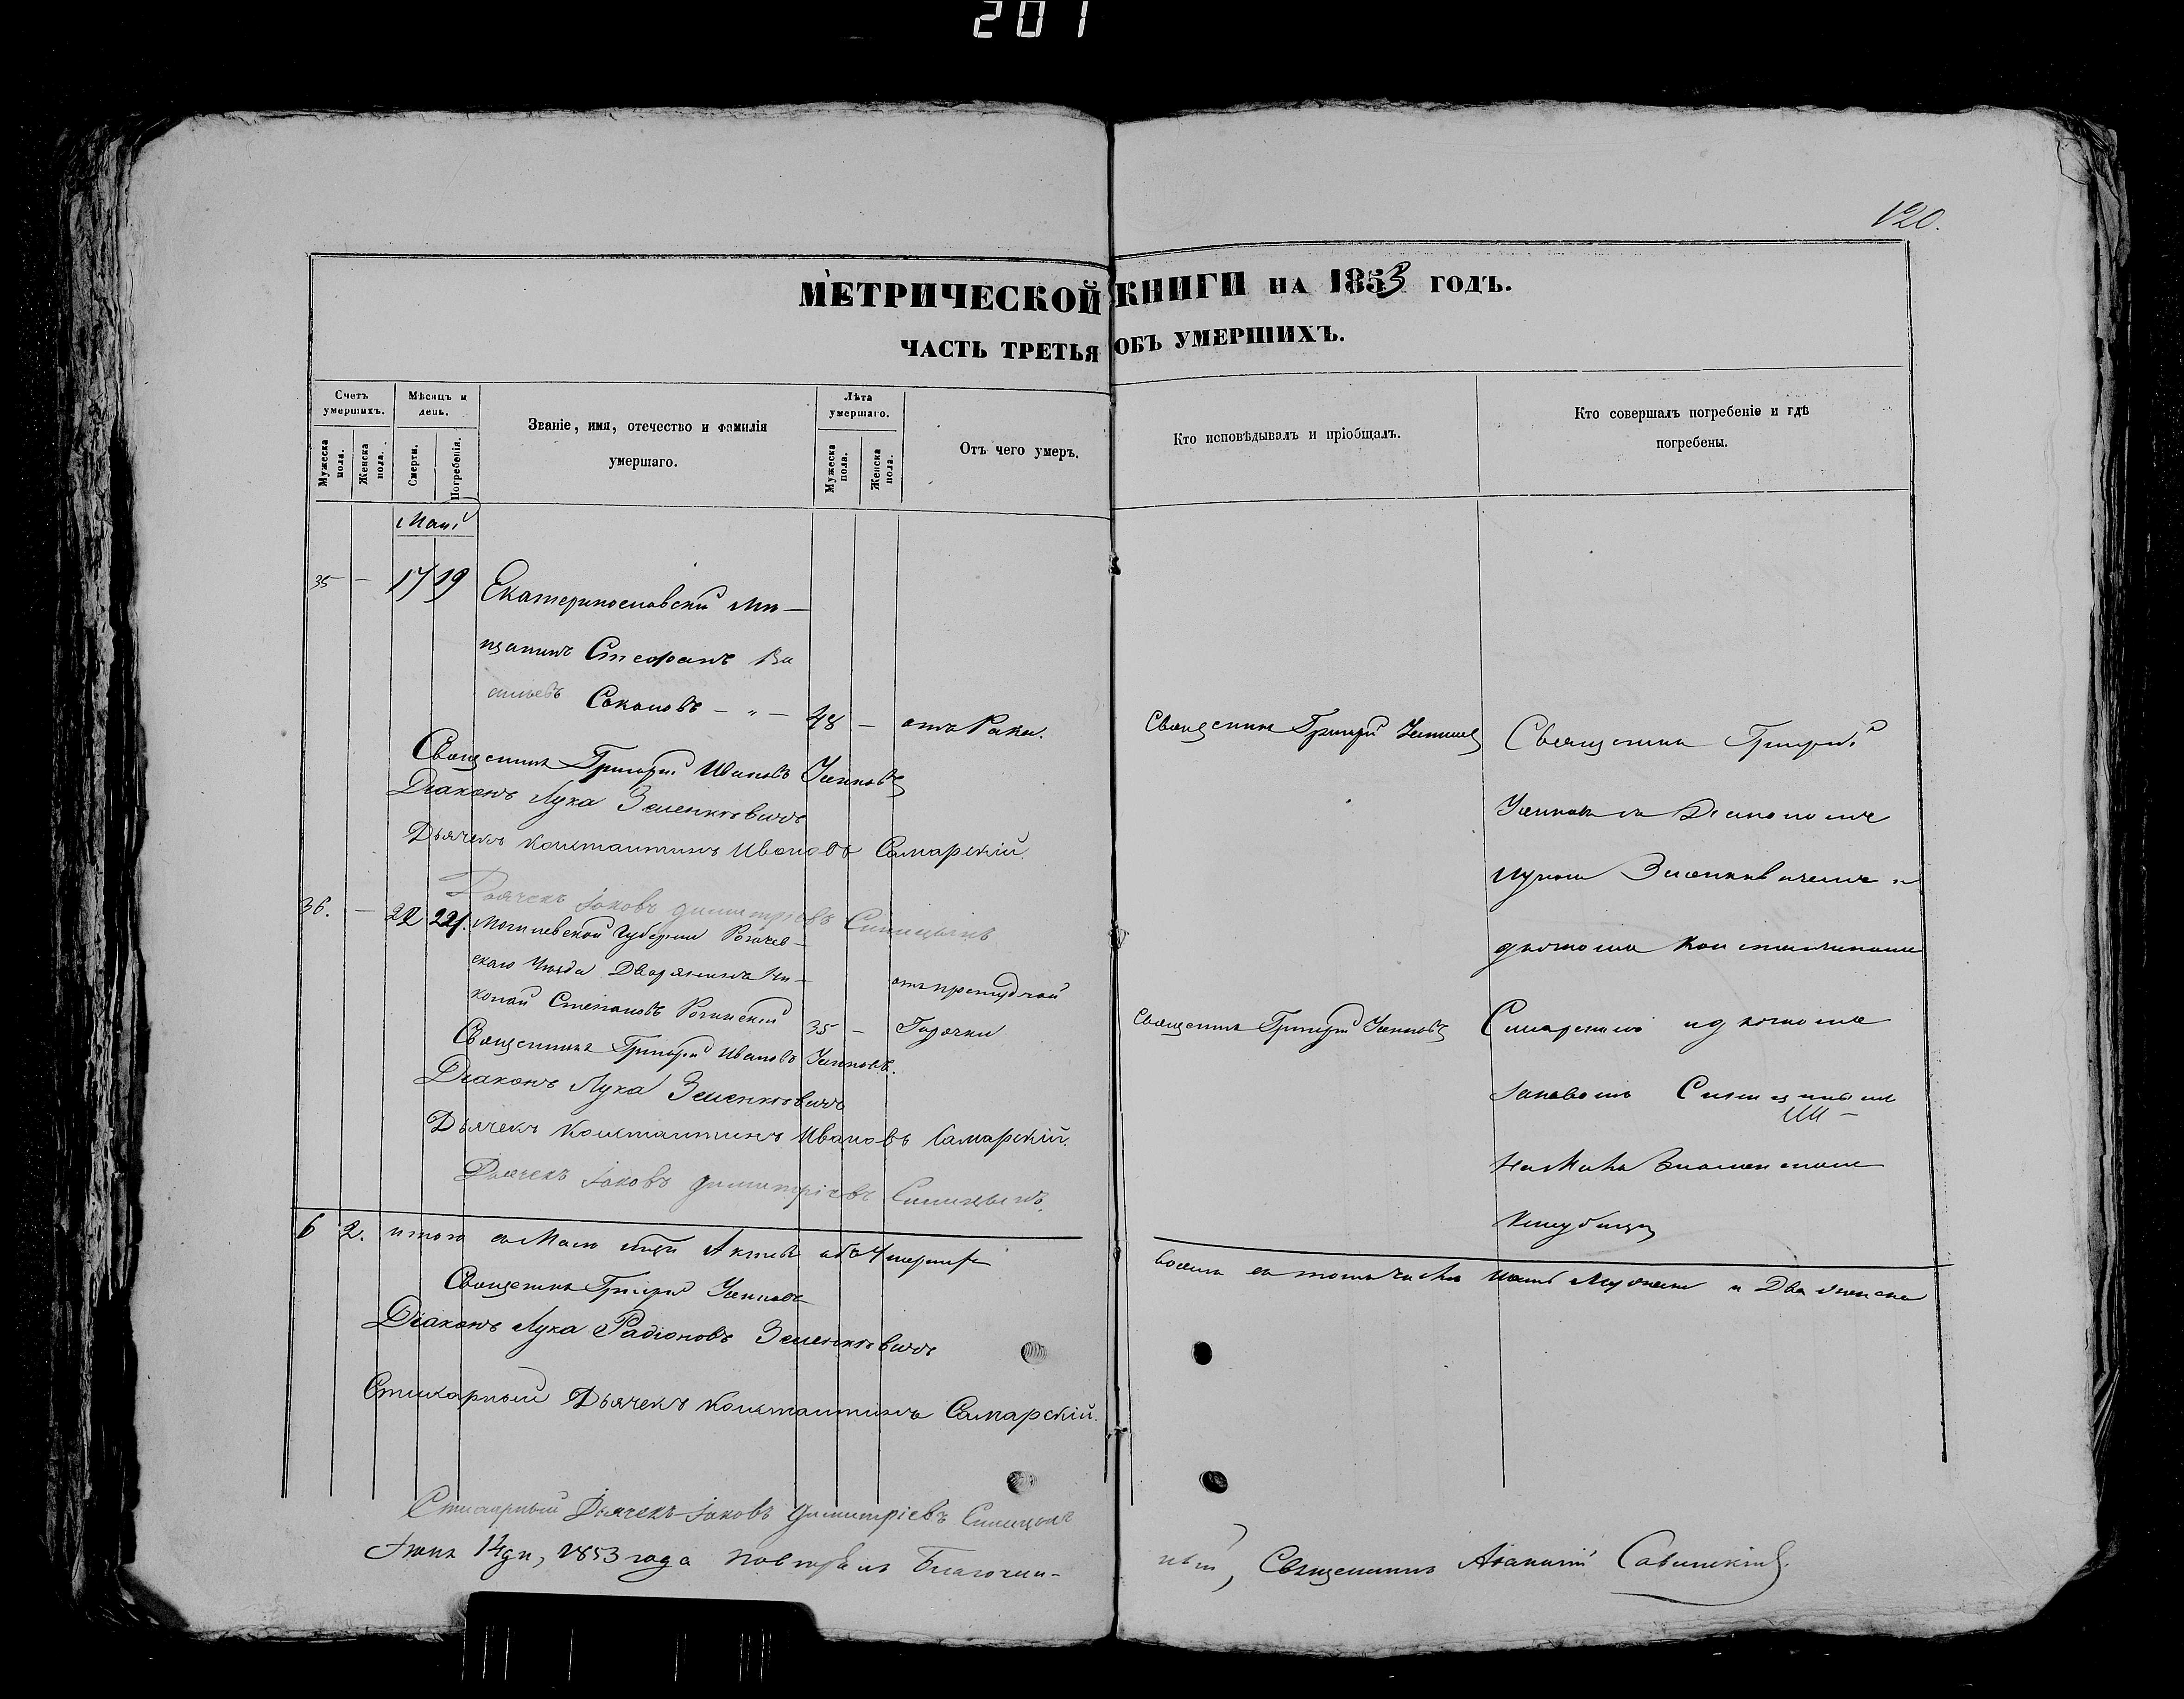 201
120.
МЕТРИЧЕСКОЙ КНИГИ НА 1853 ГОДЪ.
ЧАСТЬ ТРЕТЬЯ ОБЪ УМЕРШИХЪ.
Счетъ умершихъ.
Мужеска пола.
Женска пола.
Мѣсяцъ и день.
Смерти.
Погребенія.
Званіе, имя, отечество и фамилія умершаго.
Лѣта умершаго.
Мужеска пола.
Женска пола.
Отъ чего умеръ.
Кто исповѣдывалъ и пріобщалъ.
Кто совершалъ погребеніе и гдѣ погребены.
Маій
35 — 17 19 Екатеринославскій мѣ-
щанинъ Стефанъ Ва
сильевъ — „ — 48 — отъ Рака.
Священникъ Григорій Ивановъ
Діаконъ Лука Зеленкевичъ
Дьячекъ Константинъ Ивановъ Самарскій.
Дьячекъ Іаковъ Димитріевъ Синицынъ
36. — 22 Могилевской Губерніи Рогачев-
скаго Уѣзда Дворянинъ Ни-
колай Степановъ 35 — отъ простудной
Горячки
Священникъ Григорій Ивановъ
Діаконъ Лука Зеленкевичъ
Дьячекъ Константинъ Ивановъ Самарскій.
Дьячекъ Іаковъ Димитріевъ Синицынъ.
Священникъ Григорій
Священникъ Григорій
Священникъ Григорій
Діакономъ
Лукою Зеленкевичемъ и
дьячкомъ Константиномъ
Самарскимъ и дьячкомъ
Іаковомъ Синицынымъ
Кладбищѣ
6 2. итого въ Маѣ объ Умерших
восемь въ томъ числѣ шесть Мужеска и Два женска
Священникъ Григорій
Діаконъ Лука Радіоновъ Зеленкевичъ
Стихарный Дьячекъ Константинъ Самарскій.
Стихарный Дьячекъ Іаковъ Димитріевъ Синицынъ
Іюня 14 дн, 1853 года повѣрялъ Благочин-
ный, Священникъ